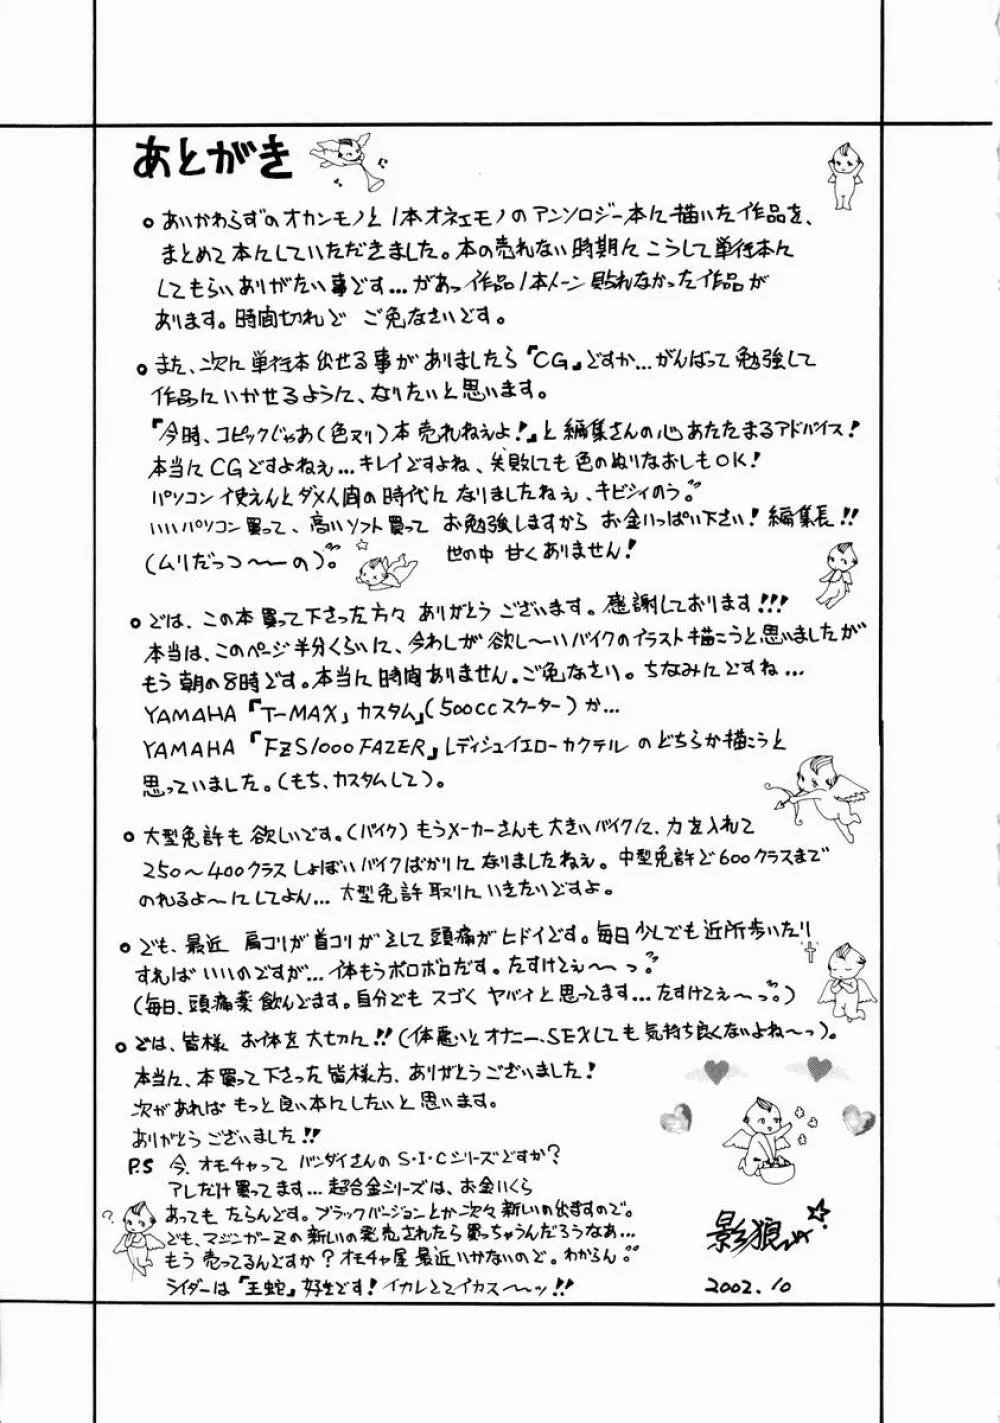 あとがき
あいかわらずのオカンモノと1本オネエモノのアンソロジー本に描いた作品を、
まとめて本にしていただきました。本の売れない時期にこうして単行本に
してもらいありがたい事です…があっ作品1本トーン貼れなかった作品が
あります。時間切れで ご免なさいです。
また、次に単行本出せる事がありましたら『CG』ですか…がんばって勉強して
作品にいかせるように、なりたいと思います。
『今時、コピックじゃあ(色ヌリ)本売れねえよ!』と編集さんの心あたたまるアドバイス!
本当にCGですよねえ…キレイですよね、失敗しても色のぬりなおしもOK!
パソコン使えんとダメ人間の時代になりましたねえ、キビシイのう。
いいパソコン買って、高いソフト買って お勉強しますから お金いっぱい下さい! 編集長!!
(ムリだっつ〜〜の)。 世の中 甘くありません!
では、この本買って下さった方々 ありがとうございます。感謝しております!!!
本当は、このページ半分くらいに、今わしが欲し〜いバイクのイラスト描こうと思いましたが
もう朝の8時です。本当に時間ありません。ご免なさい。ちなみにですね…
YAMAHA「T-MAX」カスタム」(500ccスクーター)か…
YAMAHA「FZS1000 FAZER」レディシュイエローカクテル のどちらか描こうと
思っていました。(もち、カスタムして)。
大型免許も欲しいです。(バイク)もうメーカーさんも大きいバイクに、力を入れて
250〜400クラスしょぼいバイクばかりになりましたねえ。中型免許で600クラスまで
のれるよ〜にしてよん…大型免許取りにいきたいですよ。
でも、最近 肩コリが首コリがそして頭痛がヒドイです。毎日少しでも近所歩いたり
すればいいのですが…体もうボロボロだす。たすけてえ〜〜っ。
(毎日、頭痛薬飲んでます。自分でもスゴくヤバイと思ってます…たすけてえ〜っ。)
では、皆様 お体を大切に!!(体悪いとオナニー、SEXしても気持ち良くないよね〜っ)。
本当に、本買って下さった皆様方、ありがとうございました!
次があればもっと良い本にしたいと思います。
ありがとうございました!!
P.S 今、オモチャって バンダイさんのS・I・Cシリーズですか?
アレだけ買ってます…超合金シリーズは、お金いくら
あってもたらんです。ブラックバージョンとか次々新しいの出ますので。
でも、マジンガーZの新しいの発売されたら買っちゃうんだろうなあ…
もう売ってるんですか?オモチャ屋最近いかないので。わからん。
ライダーは『王蛇』好きです!イカレとてイカス〜ッ!!
?
影狼
2002.10